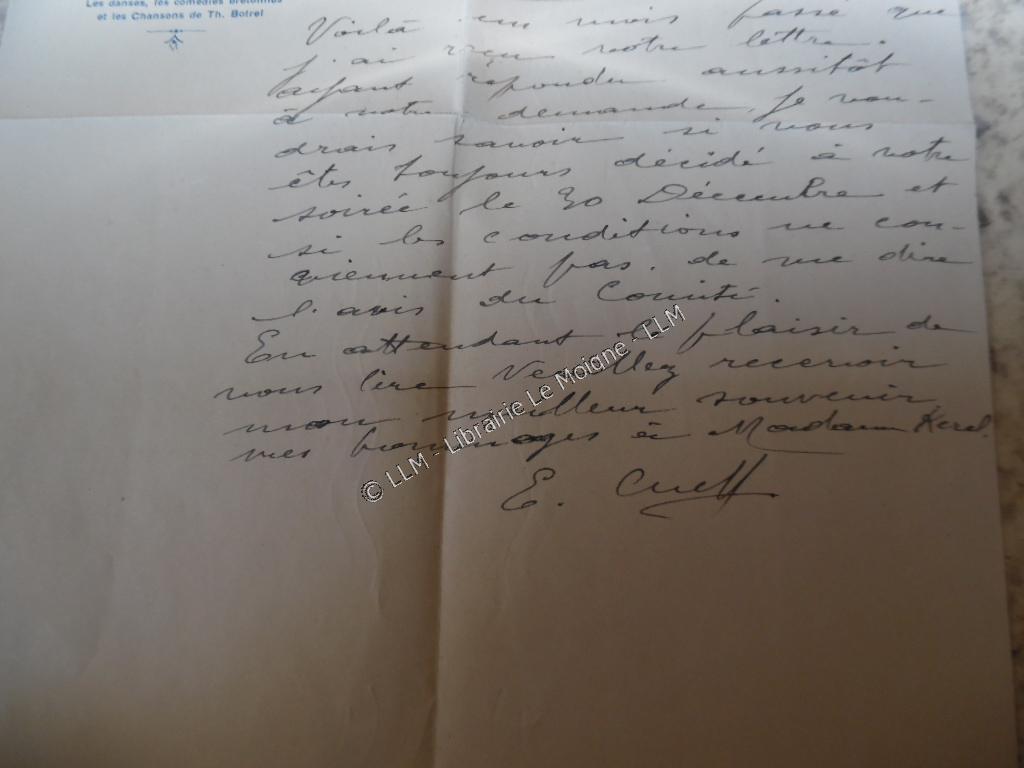 Les danses, les comédies bretonnes
et les Chansons de Th. Botrel
Voilà un mois passé que
j'ai reçu votre lettre.
ayant répondu aussitôt
à votre demande, Je vou-
drais savoir si vous
êtes toujours décidé à votre
soirée le 30 Décembre et
si les conditions ne con-
viennent pas. de me dire
l'avis du Comité.
En attendant le plaisir de
vous lire Veuillez recevoir
mon meilleur souvenir
mes hommages à Madame
E. Cueff
© LLM - Librairie Le Moigne - LLM